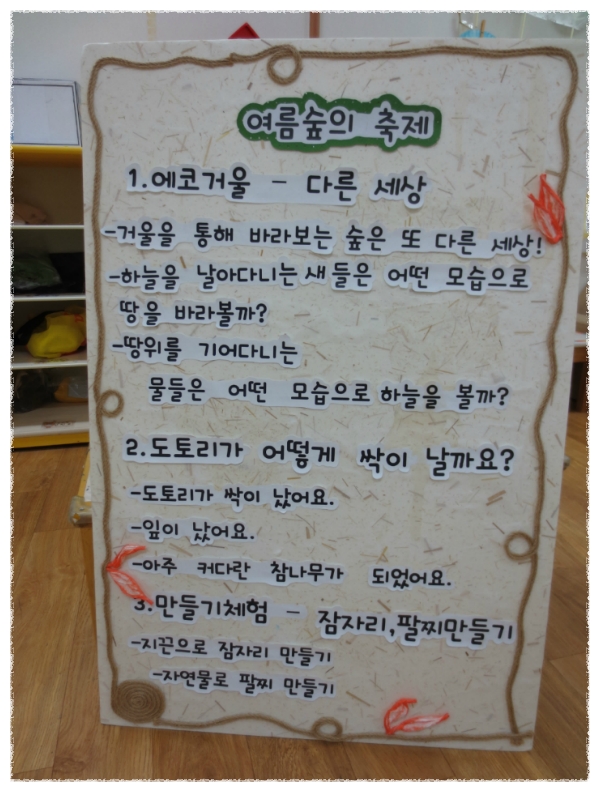 여름숲의 축제
1.에코거울 - 다른 세상
-거울을 통해 바라보는 숲은 또 다른 세상!
-하늘을 날아다니는새들은 어떤 모습으로
땅을 바라볼까?
-땅위를 기어다니는
물들은 어떤 모습으로 하늘을 볼까?
2.도토리가 어떻게 싹이 날까요?
-도토리가 싹이 났어요.
-잎이 났어요.
-아주 커다란 참나무가 되었어요.
3.만들기체험 - 잠자리,팔찌만들기
-지끈으로 잠자리 만들기
-자연물로 팔찌 만들기